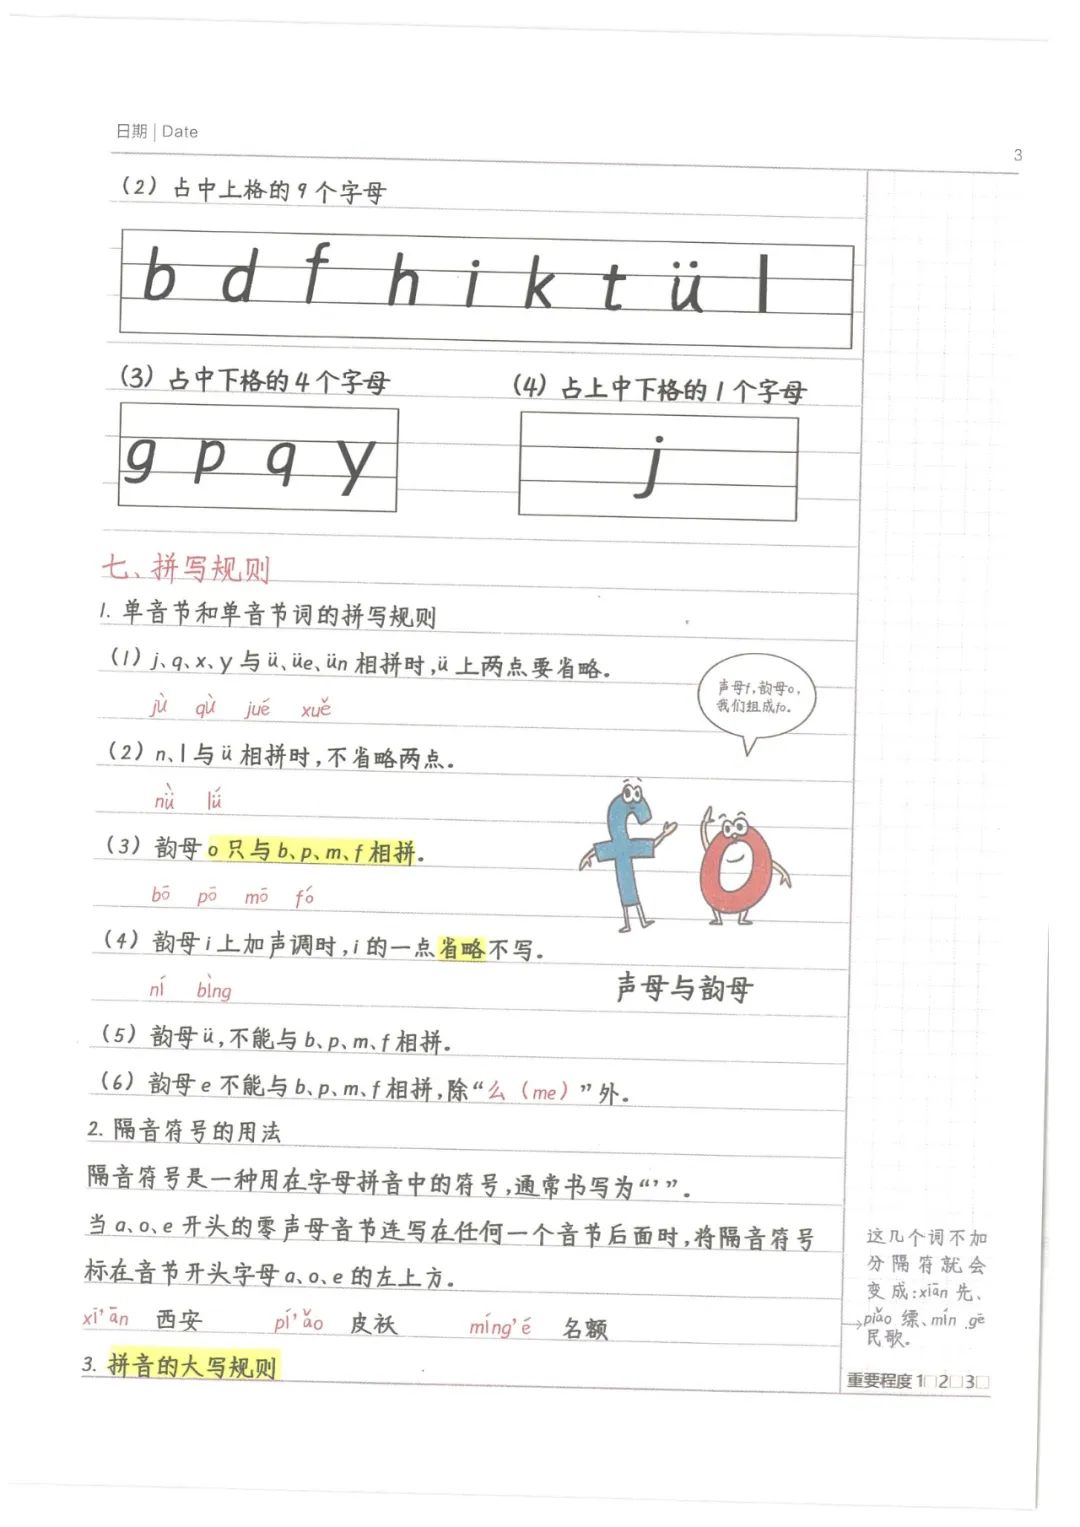 日期 | Date
3
(2) 占中上格的9个字母
b d f h i k t ü l
(3) 占中下格的4个字母
(4) 占上中下格的1个字母
g p q y
j
七、拼写规则
1. 单音节和单音节词的拼写规则
(1) j、q、x、y与ü、üe、ün相拼时,ü上两点要省略。
jù qù jué xuě
声母f,韵母o,
我们组成fo。
(2) n、l与ü相拼时,不省略两点。
nǜ lǘ
(3) 韵母o只与b、p、m、f相拼。
bō pō mō fó
f o
(4) 韵母i上加声调时,i的一点省略不写。
ní bìng
声母与韵母
(5) 韵母ü,不能与b、p、m、f相拼。
(6) 韵母e不能与b、p、m、f相拼,除“么(me)”外。
2. 隔音符号的用法
隔音符号是一种用在字母拼音中的符号,通常书写为“’”。
当a、o、e开头的零声母音节连写在任何一个音节后面时,将隔音符号
标在音节开头字母a、o、e的左上方。
xī’ān 西安 pí’ǎo 皮袄 míng’é 名额
3. 拼音的大写规则
这几个词不加
分隔符就会
变成:xiān先、
piǎo缥、mín gē
民歌。
重要程度1□2□3□